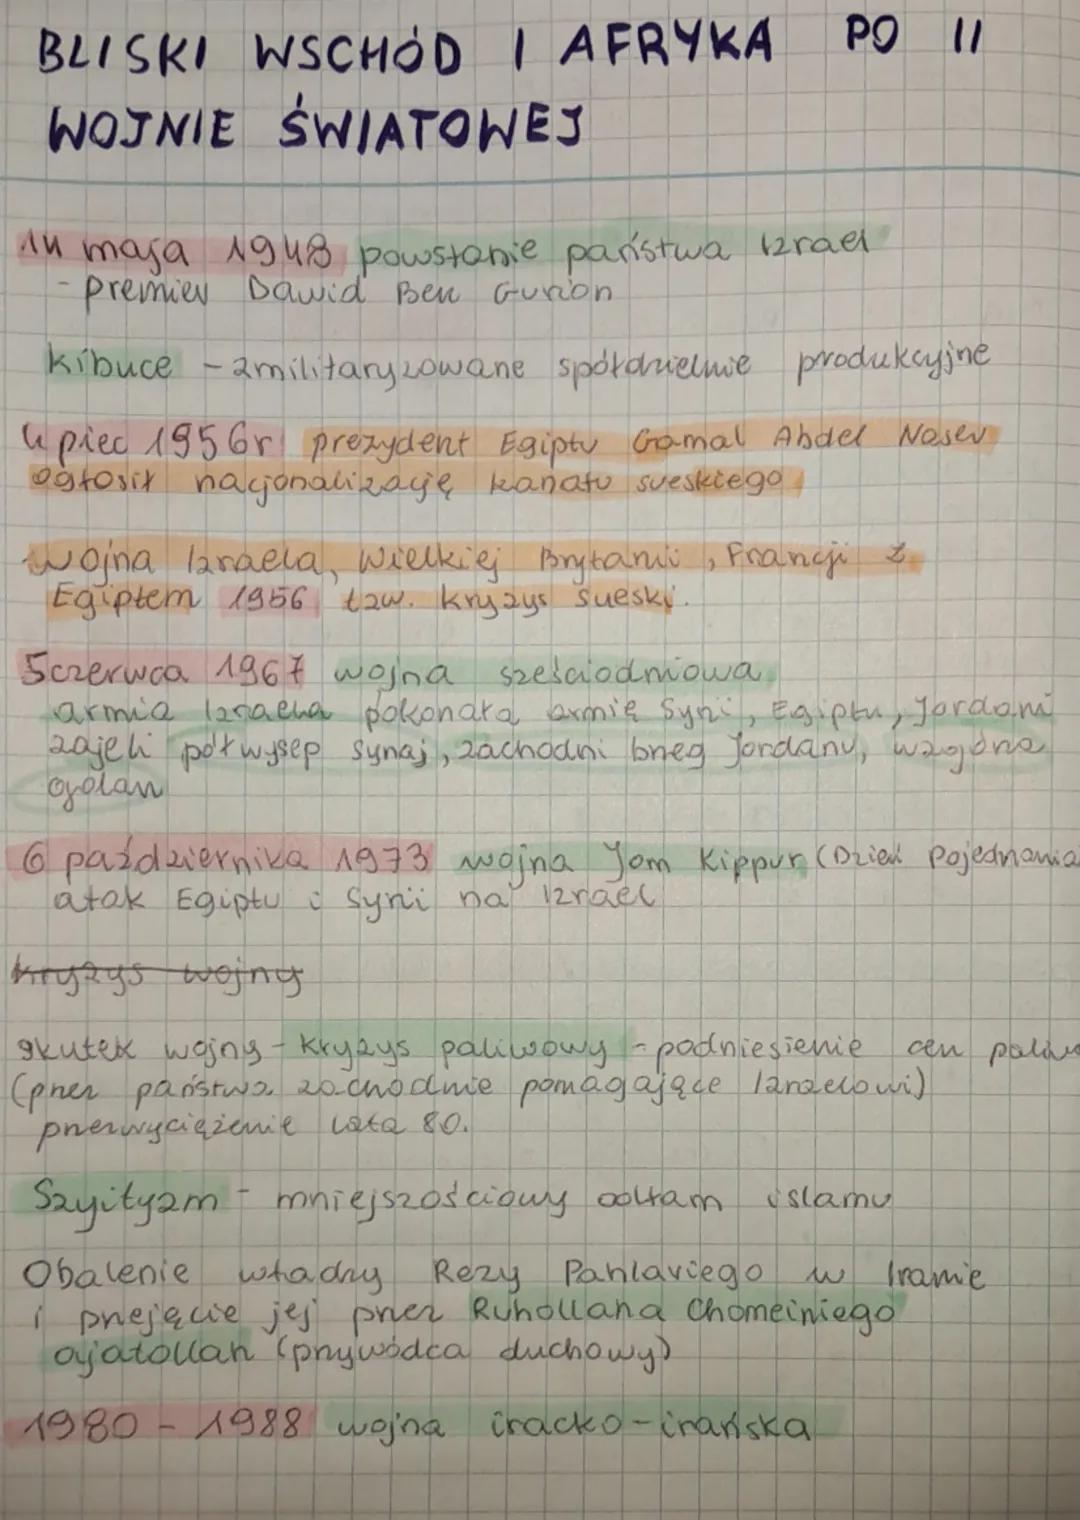 BLISKI WSCHÓD I AFRYKA PO II
WOJNIE ŚWIATOWEJ
14 maja 1948 powstanie państwa Izrael
- premier Dawid Ben Gurion
kibuce - zmilitaryzowane spółdzielnie produkcyjne
Lipiec 1956r prezydent Egiptu Gamal Abdel Naser
ogłosił nacjonalizację kanału sueskiego
wojna Izraela, Wielkiej Brytanii, Francji z
Egiptem 1956 tzw. kryzys sueski.
5 czerwca 1967 wojna sześciodniowa
armia Izraela pokonała armię Syrii, Egiptu, Jordani
zajęli półwysep synaj, zachodni brzeg Jordanu, wzgórza
golan
6 października 1973 wojna Jom Kippur (Dzień Pojednania
atak Egiptu i Syrii na Izrael
kryzys wojny
skutek wojny - kryzys paliwowy - podniesienie cen paliw
(przez państwa zachodnie pomagające Izraelowi)
przezwyciężenie lata 80.
Szyityzm - mniejszościowy odłam islamu
Obalenie władzy Rezy Pahlaviego w Iranie
i przejęcie jej przez Ruhollaha Chomeiniego
ajatollah (przywódca duchowy)
1980 - 1988 wojna iracko-irańska